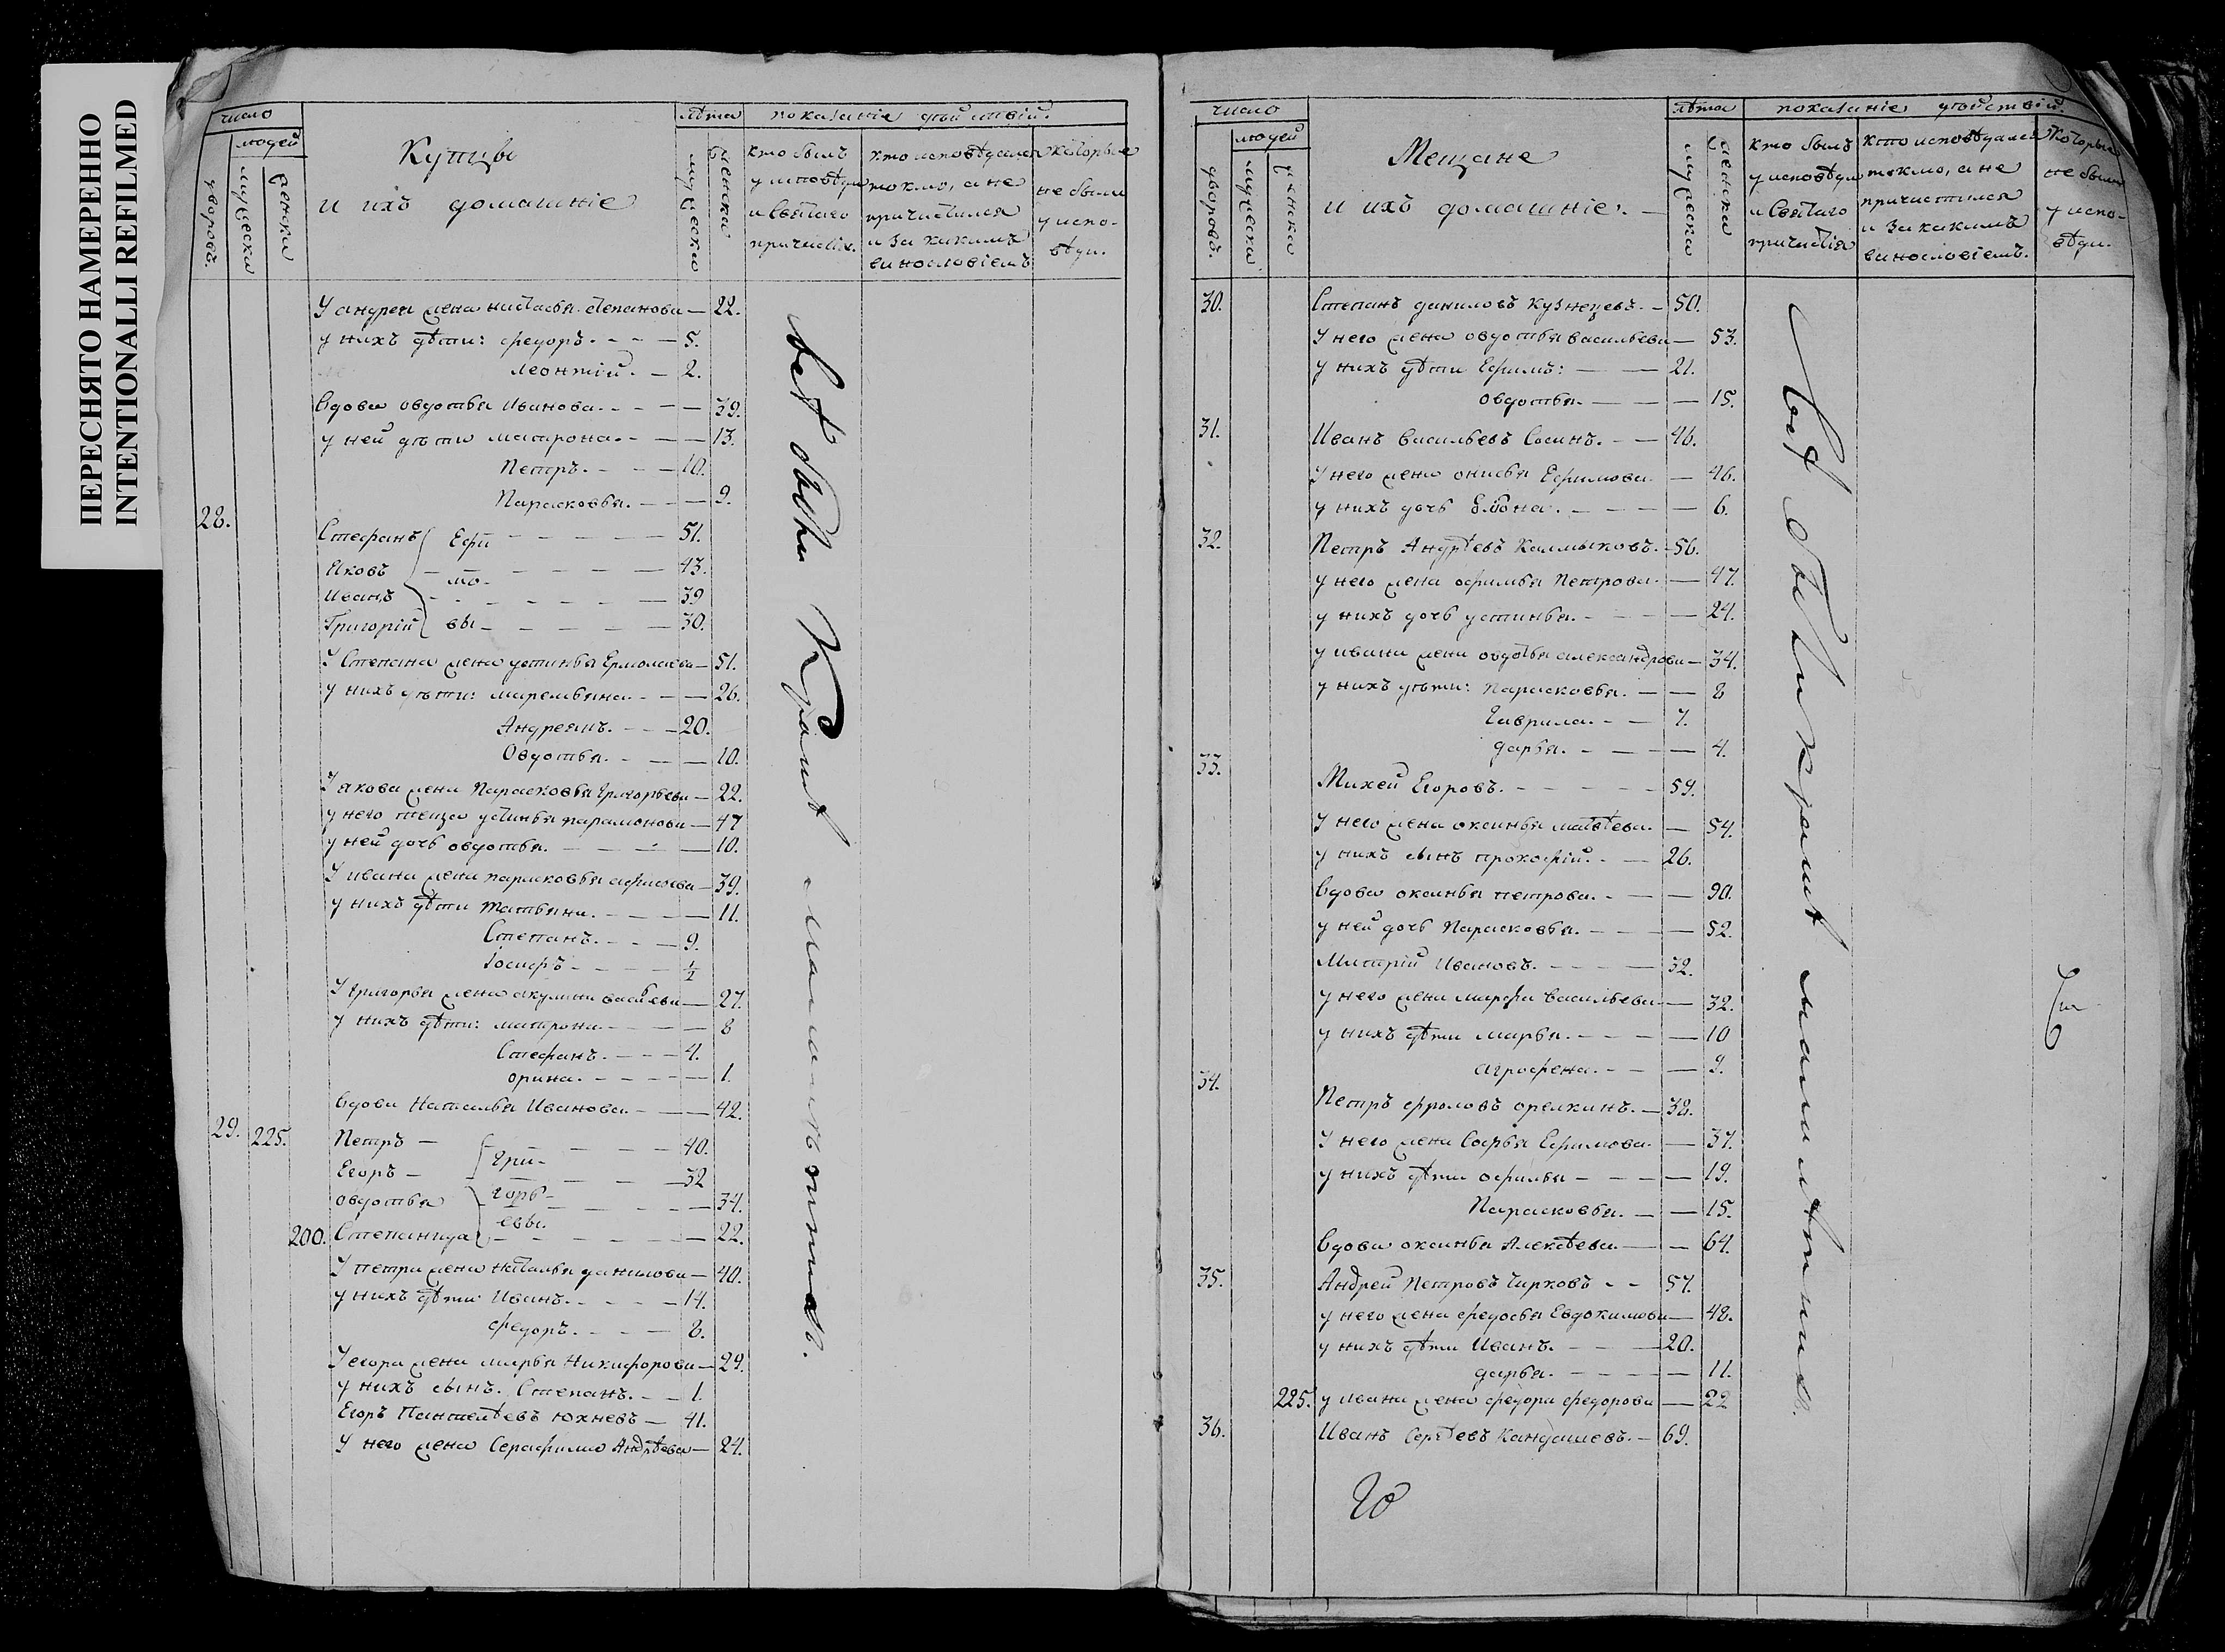 ПЕРЕСНЯТО НАМЕРЕННО
INTENTIONALLI REFILMED
число
людей
дворовъ.
мужеска
женска
Купцы
и ихъ домашніе
лѣта
мужеска
женска
показаніе действій.
кто былъ
у исповѣди
и Святаго
причастія.
кто исповѣдался
токмо, а не
причастился
и за какимъ
винословіемъ
Которые
не были
у испо-
вѣди.
У андрея жена настасья степанова — 22.
у нихъ дѣти: федоръ. - - - 5.
леонтій. - 2.
Вдова овдотья Иванова. - - - 39.
у ней дѣти матрона. - - - 13.
Петръ. - - - 10.
Парасковья. - - - 9.
28.
Стефанъ Ефи - - - 51.
Яковъ мо- - - - 43.
Иванъ - - - 39
Григорій вы - - - 30.
У Степана жена устинья Ермолаева — 51.
у нихъ дѣти: маремьяна. - - - 26.
Андреянъ. - - - 20.
Овдотья. - - - 10.
У якова жена Парасковья григорьева — 22.
у него теща устинья парамонова — 47
у ней дочь овдотья. - - - 10.
У ивана жена парасковья — 39.
у нихъ дѣти татьяна. - - - 11.
Степанъ. - - - 9.
Іосифъ - - - 1/2
У григорья жена акулина васильева — 27.
у нихъ дѣти: матрона. - - - 8
Стефанъ. - - - 4.
орина. - - - 1.
Вдова Наталья Иванова. - - - 42.
29. 225. Петръ - гри- - - - 40.
Егоръ - - - - 32
овдотья горь- - - - 34.
евы.
200. Степанида - - - 22.
У петра жена наталья данилова — 40.
у нихъ дѣти Иванъ. - - - 14.
федоръ. - - - 8.
У егора жена марья Никифорова — 24.
у нихъ сынъ. Степанъ. - - 1.
Егоръ Пантелѣевъ Юхневъ — 41.
У него жена Серафима Андрѣева — 24.
всѣ были Кромѣ малолѣтнихъ.
число
людей
дворовъ.
мужеска
женска
Мещане
и ихъ домашніе. -
лѣта
мужеска
женска
показаніе действій.
кто былъ
у исповѣди
и Святаго
причастія
кто исповѣдался
токмо, а не
причастился
и за какимъ
винословіемъ.
Которые
не были
у испо-
вѣди.
30. Степанъ даниловъ Кузнецовъ. - 50.
У него жена овдотья васильева — 53.
у нихъ дѣти Ефимъ: - - - 21.
овдотья. - - - 15.
31. Иванъ Васильевъ Сосинъ. - - 46.
У него жена онисья Ефимова. - 46.
у нихъ дочь - - - 6.
32. Петръ Андрѣевъ Калмыковъ. - 56.
у него жена офимья Петрова. - 47.
у нихъ дочь устинья. - - - 24.
у ивана жена овдотья александрова — 34.
у нихъ дѣти: Парасковья. - - - 8
Гаврила. - - 7.
дарья. - - - 4.
33. Михей Егоровъ. - - - 59.
У него жена оксинья матвѣева. - 54.
у нихъ сынъ прокофій. - - 26.
Вдова оксинья петрова. - - - 90.
у ней дочь Парасковья. - - - 52.
Митрій Ивановъ. - - - 32.
у него жена марфа Васильева — 32.
у нихъ дѣти марья. - - - 10
агрофена. - - - 9.
34. Петръ фроловъ орелкинъ. - 38.
У него жена Софья Ефимова. - 37.
у нихъ дѣти офимья - - - 19.
Парасковья. - - - 15.
Вдова оксинья Алексѣева. - - 64.
35. Андрей Петровъ Чирковъ - - 57.
у него жена федосья Евдокимова — 48.
у нихъ дѣти Иванъ. - - - 20.
дарья. - - - 11.
225. у ивана жена федора федорова — 22
36. Иванъ Сергѣевъ Кандашевъ. - 69.
всѣ были кромѣ малолѣтнихъ.